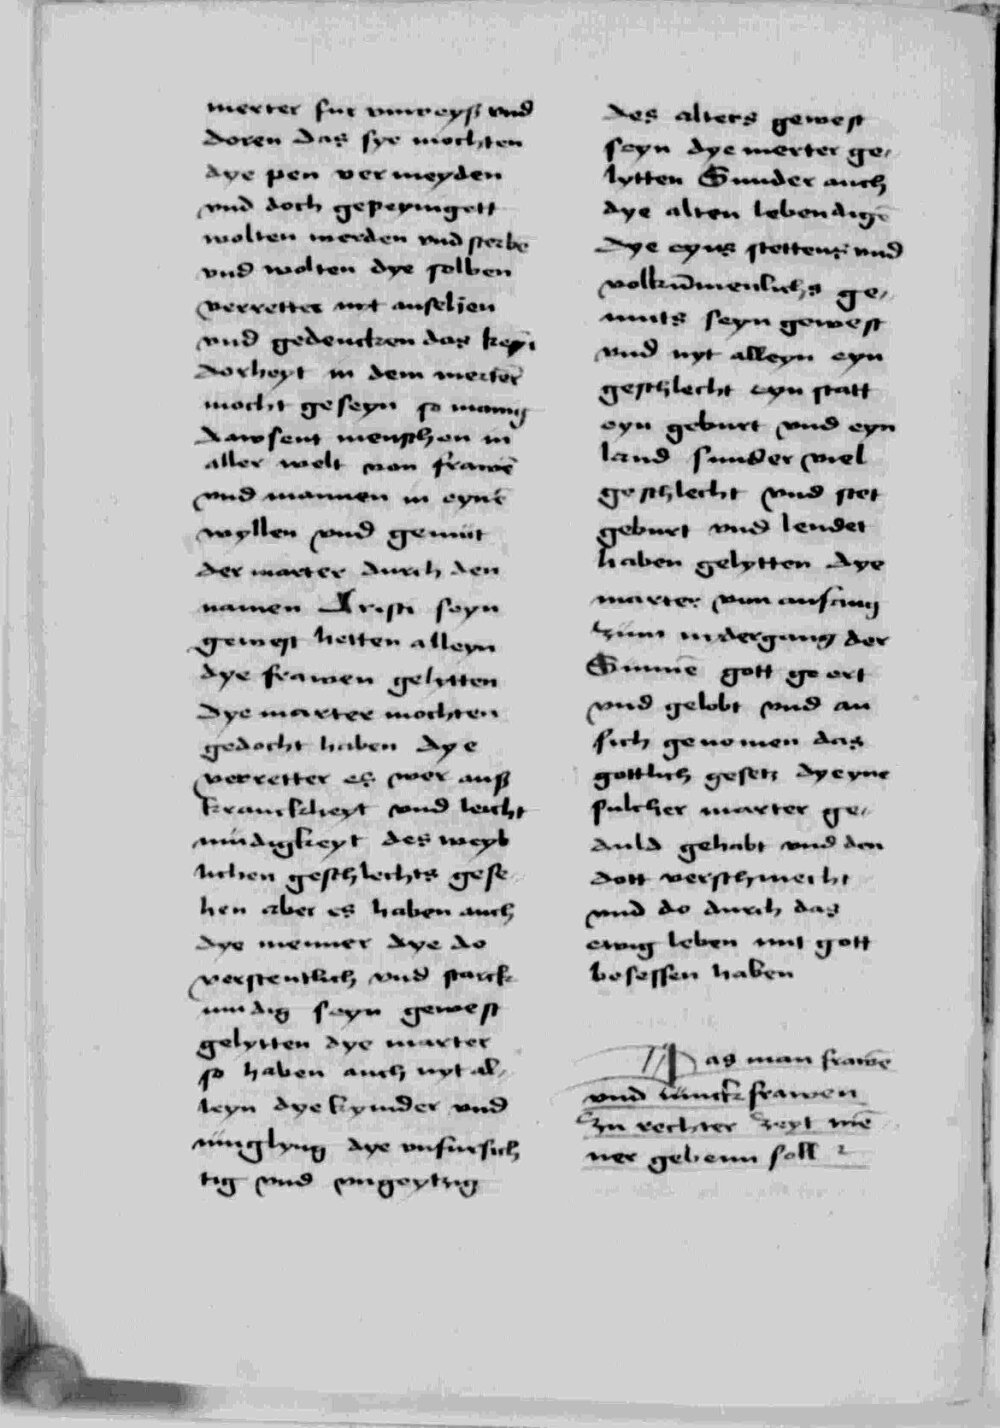 merter fur vnweyß vnd
doren das sye mochten
dye pen vermeyden
vnd doch gepeyingett
wolten werden vnd sterbē
vnd wolten dye solben
verretter nyt ansehen
vnd gedencken das keyn
dorheyt in dem merter
mocht geseyn so manig
dawsent menschen in
aller welt von frawē
vnd mannen in eynē
wyllen vnd gemüt
der marter durch den
namen Xristi seyn
gewest hetten alleyn
dye frawen gelytten
dye marter mochten
gedocht haben dye
verretter es wer auß
kranckheyt vnd leicht
müdigkeyt des weyb
lichen geschlechts gese
hen aber es haben auch
dye menner dye do
verstentlich vnd starck
mudig seyn gewest
gelytten dye marter
so haben auch nyt al,
leyn dye kynder vnd
iünglyng dye vnfursich
tig vnd vngeytzig
des alters gewest
seyn dye merter ge,
lytten Sunder auch
dye alten lebendigē
dye eyns stettens vnd
volkūmenlichs ge,
muts seyn gewest
vnd nyt alleyn eyn
geschlecht eyn statt
eyn geburt vnd eyn
land sunder viel
geschlecht vnd stet
geburt vnd lender
haben gelytten dye
marter vom anfang
zum nydergang der
Sunnē gott geert
vnd gelobt vnd an
sich genomen das
gottlich gesetz dye yne
sulcher marter ge,
duld gehabt vnd den
dott verschmecht
vnd do durch das
ewig leben mit gott
besessen haben
Das man frawē
vnd iunckfrawen
zu rechter zeyt mē
ner gebenn soll